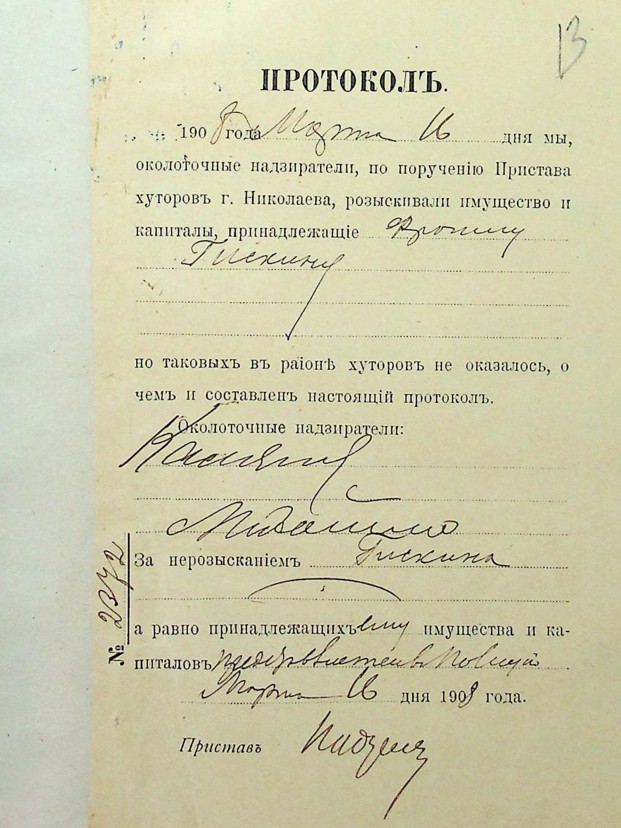 13
ПРОТОКОЛЪ.
1908 года Марта 16 дня мы,
околоточные надзиратели, по порученію Пристава
хуторовъ г. Николаева, розыскивали имущество и
капиталы, принадлежащіе
Гискину
но таковыхъ въ районѣ хуторовъ не оказалось, о
чемъ и составленъ настоящій протоколъ.
Околоточные надзиратели:
За нерозысканіемъ Гискина
№ 2372
а равно принадлежащихъ ему имущества и ка-
питаловъ
Марта 16 дня 1908 года.
Приставъ